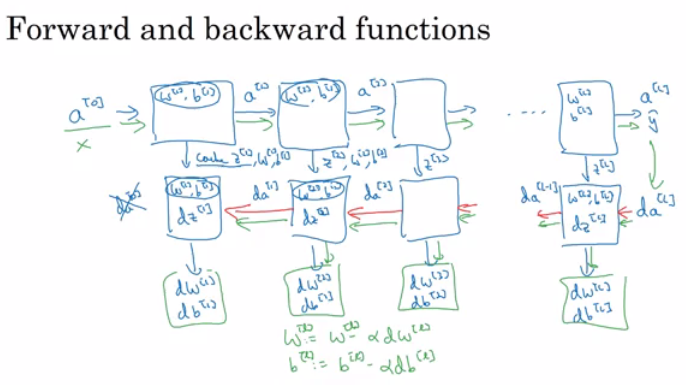 Forward and backward functions
a^[0] w^[1], b^[1] a^[1] w^[2], b^[2] a^[2] .... w^[L] a^[L]
x b^[L] ŷ
cache z^[1], w^[1], b^[1] z^[2], w^[2], b^[2] z^[3] z^[L]
da^[0] w^[1], b^[1] da^[1] w^[2], b^[2] da^[2] da^[L-1] w^[L], b^[L] da^[L]
dz^[1] dz^[2] dz^[L]
dw^[1] dw^[2] dw^[3] dw^[L]
db^[1] db^[2] db^[3] db^[L]
w^[l] := w^[l] - αdw^[l]
b^[l] := b^[l] - αdb^[l]